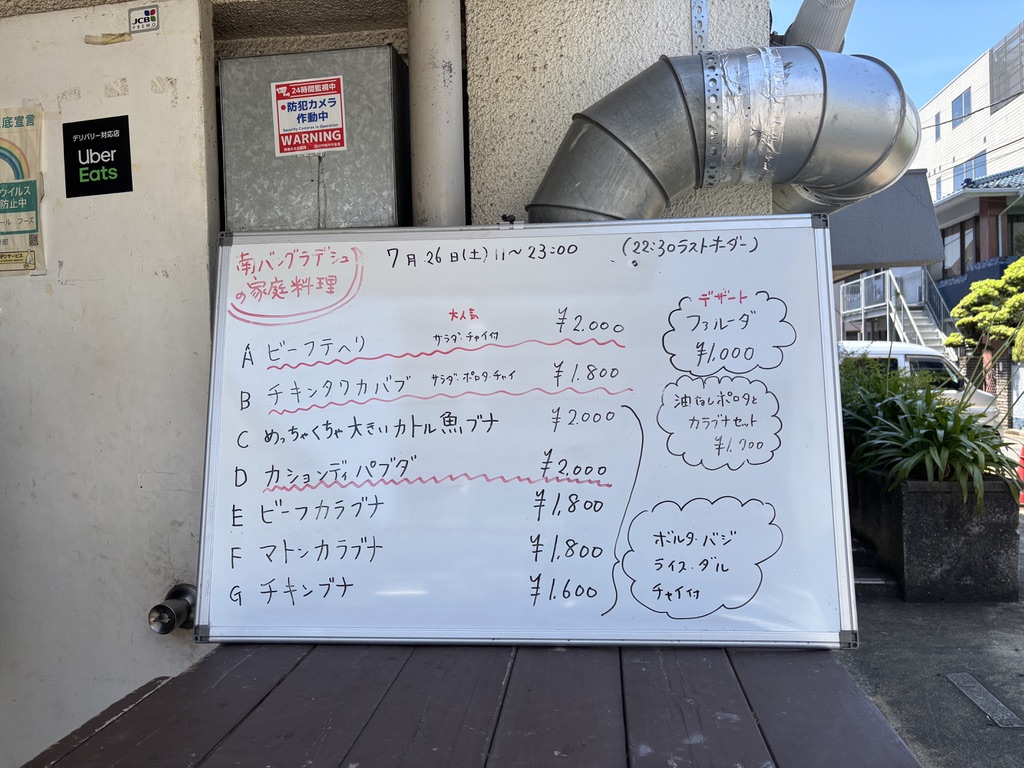 JCB
PREMO
24時間監視中
防犯カメラ
作動中
Security Camera in Operation
WARNING
底宣言
デリバリー対応店
Uber
Eats
ウイルス
防止中
南バングラデシュ
の家庭料理
7月26日(土) 11〜23:00 (22:30ラストオーダー)
大人気
A ビーフテヘリ サラダ・チャイ付 ¥2.000
B チキンタワカバブ サラダ・ポロタ・チャイ ¥1.800
C めっちゃくちゃ大きいカトル魚ブナ ¥2.000
D カションディパブダ ¥2.000
E ビーフカラブナ ¥1.800
F マトンカラブナ ¥1.800
G チキンブナ ¥1.600
デザート
ファルーダ
¥1.000
油なしポロタと
カラブナセット
¥1.700
ボルタ・バジ
ライス・ダル
チャイ付